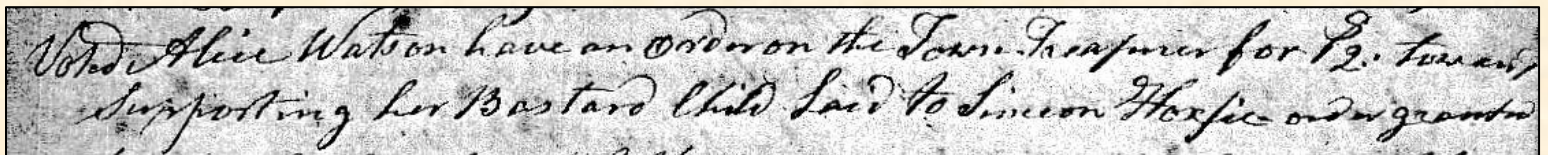 Voted Alice Watson have an order on the Town Treasurer for $2. towards
Supporting her Bastard Child Laid to Simeon Hoxsie order granted